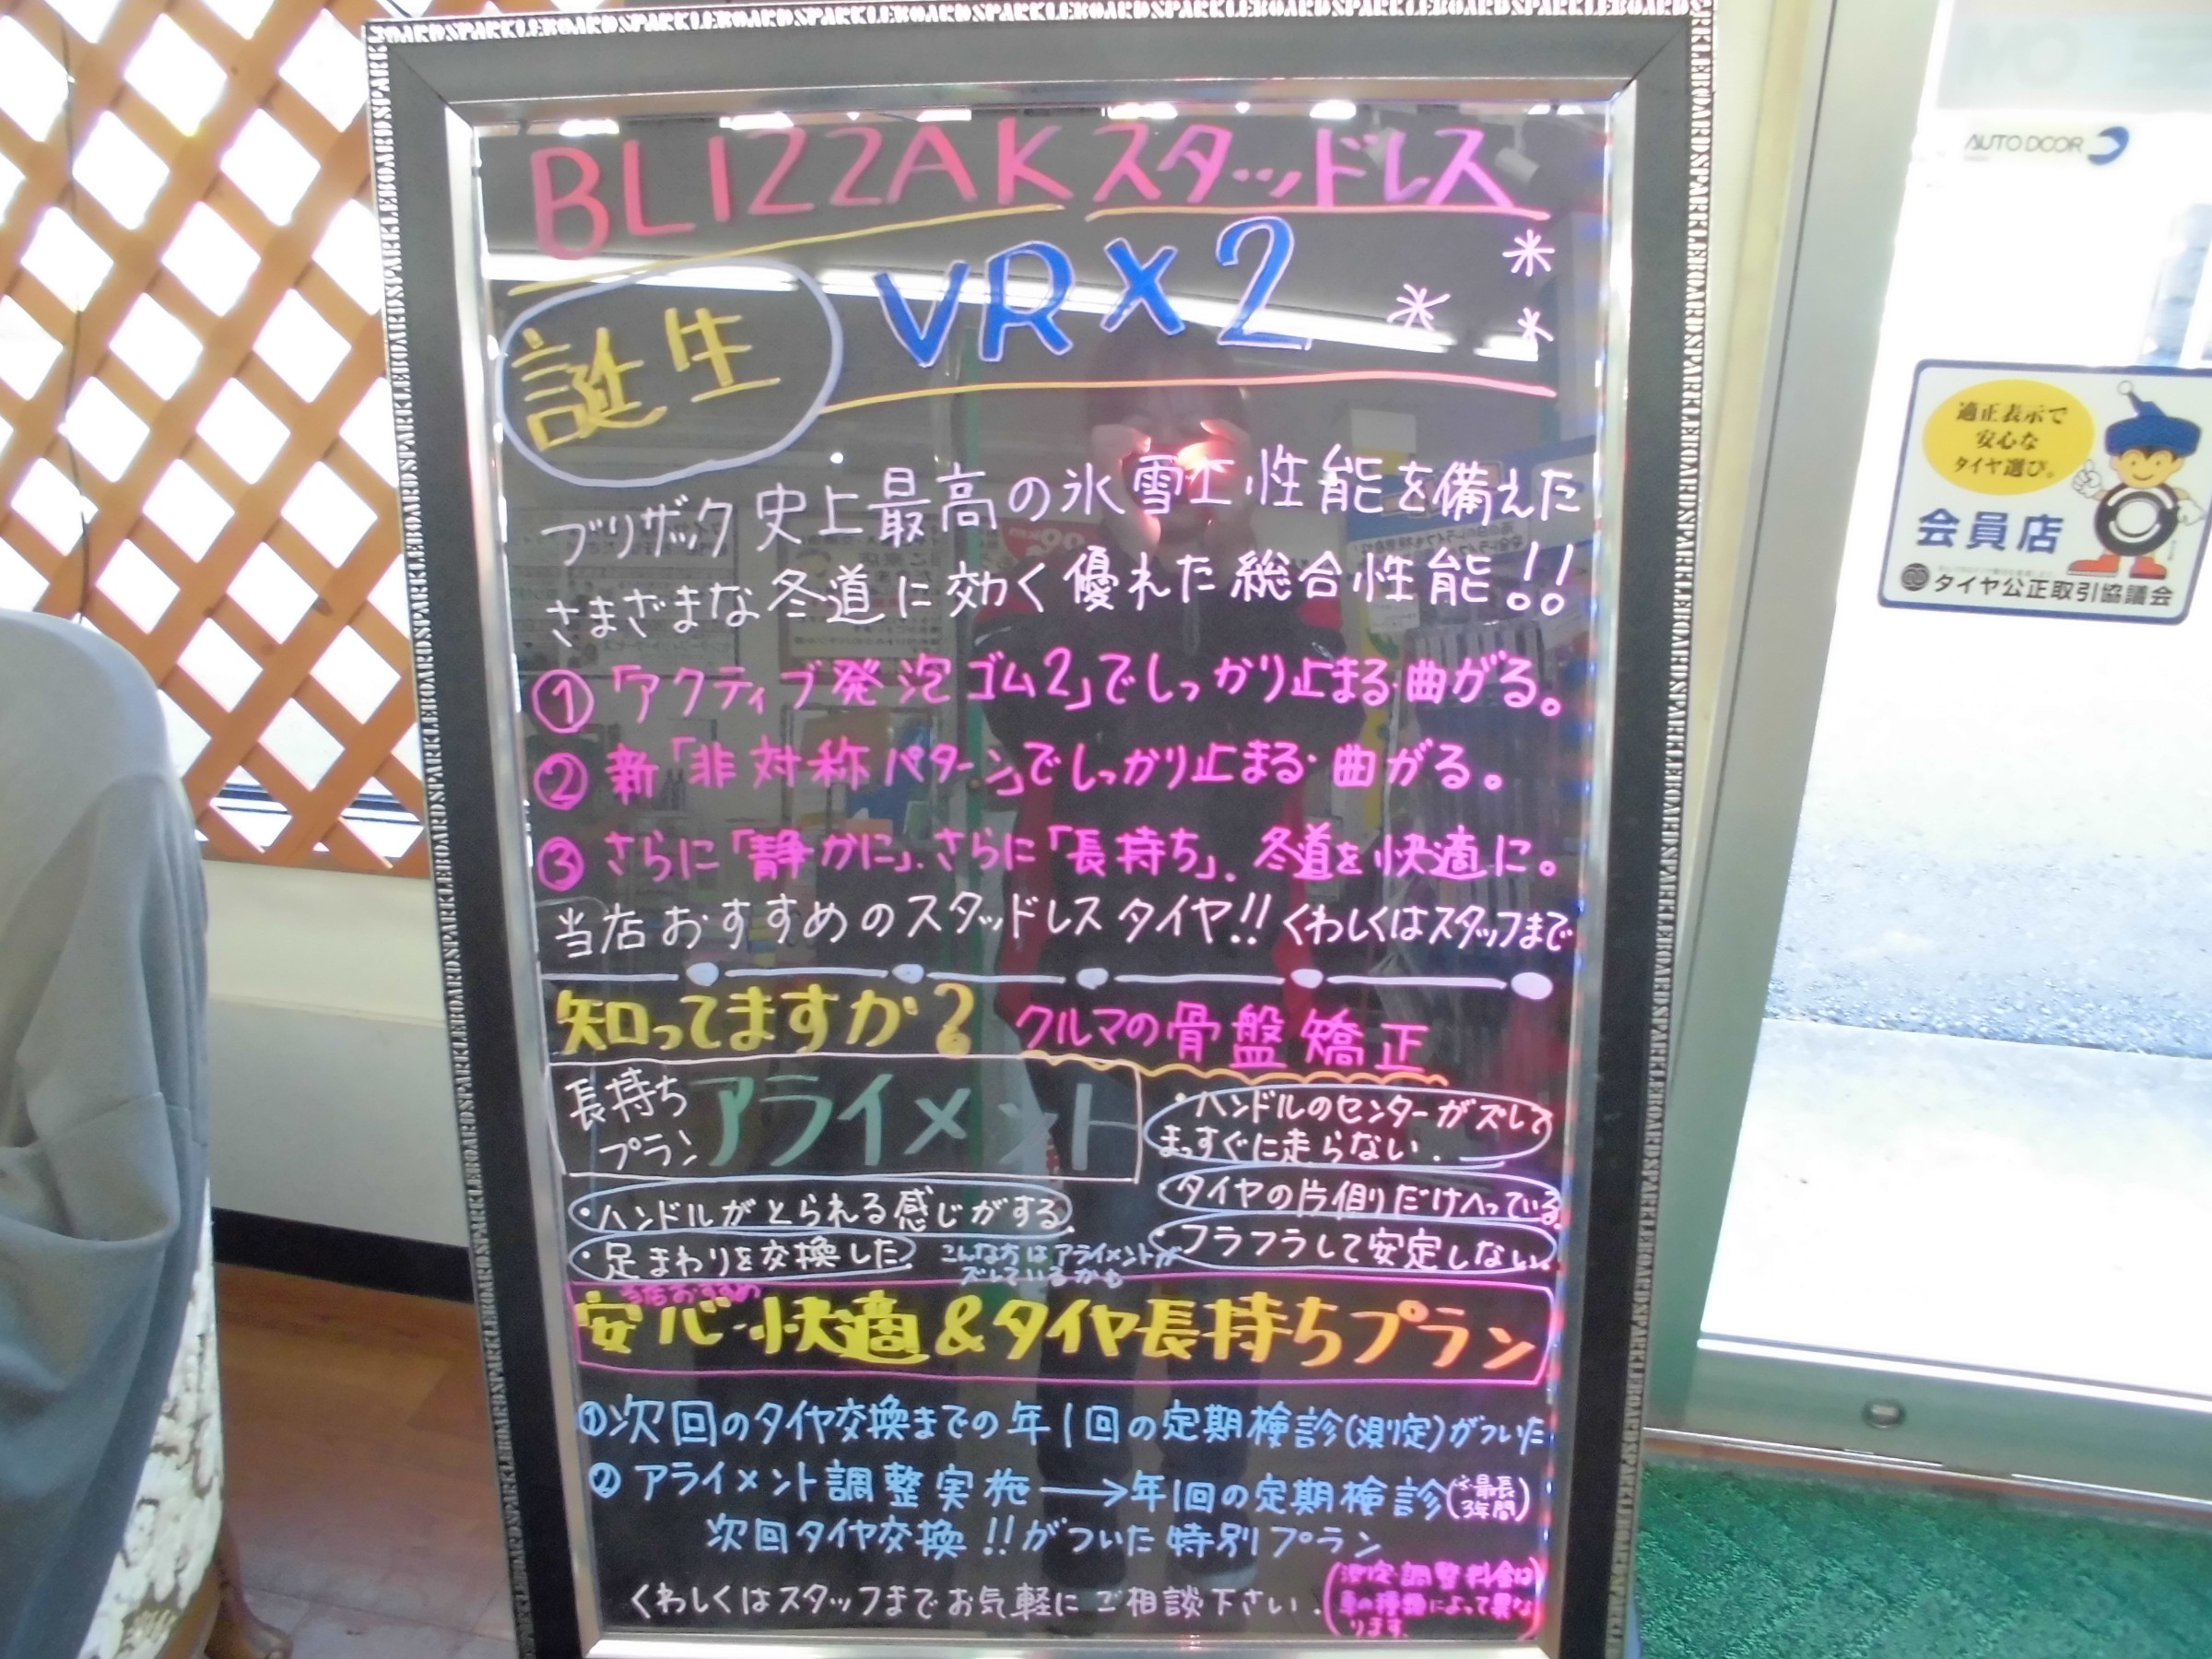 BLIZZAK スタッドレス
VRX2
誕生
ブリザック史上最高の氷雪上性能を備えた
さまざまな冬道に効く優れた総合性能!!
①「アクティブ発泡ゴム2」でしっかり止まる・曲がる。
②新「非対称パターン」でしっかり止まる・曲がる。
③さらに「静かに」、さらに「長持ち」、冬道を快適に。
当店おすすめのスタッドレスタイヤ!! くわしくはスタッフまで
知ってますか? クルマの骨盤矯正
長持ち
プラン
アライメント
・ハンドルのセンターがズレて
まっすぐに走らない.
・タイヤの片側りだけへっている.
・ハンドルがとられる感じがする.
・フラフラして安定しない.
・足まわりを交換した
こんな方はアライメントが
ズレているかも
当店おすすめ
安心・快適&タイヤ長持ちプラン
①次回のタイヤ交換までの年1回の定期検診(測定)がついた
②アライメント調整実施→年1回の定期検診
(最長
3年間)
次回タイヤ交換!!がついた特別プラン
くわしくはスタッフまでお気軽にご相談下さい.
(測定・調整料金は
車の種類によって異な
ります.
AUTO DOOR
適正表示で
安心な
タイヤ選び。
会員店
タイヤ公正取引協議会
SPARKLEBOARD